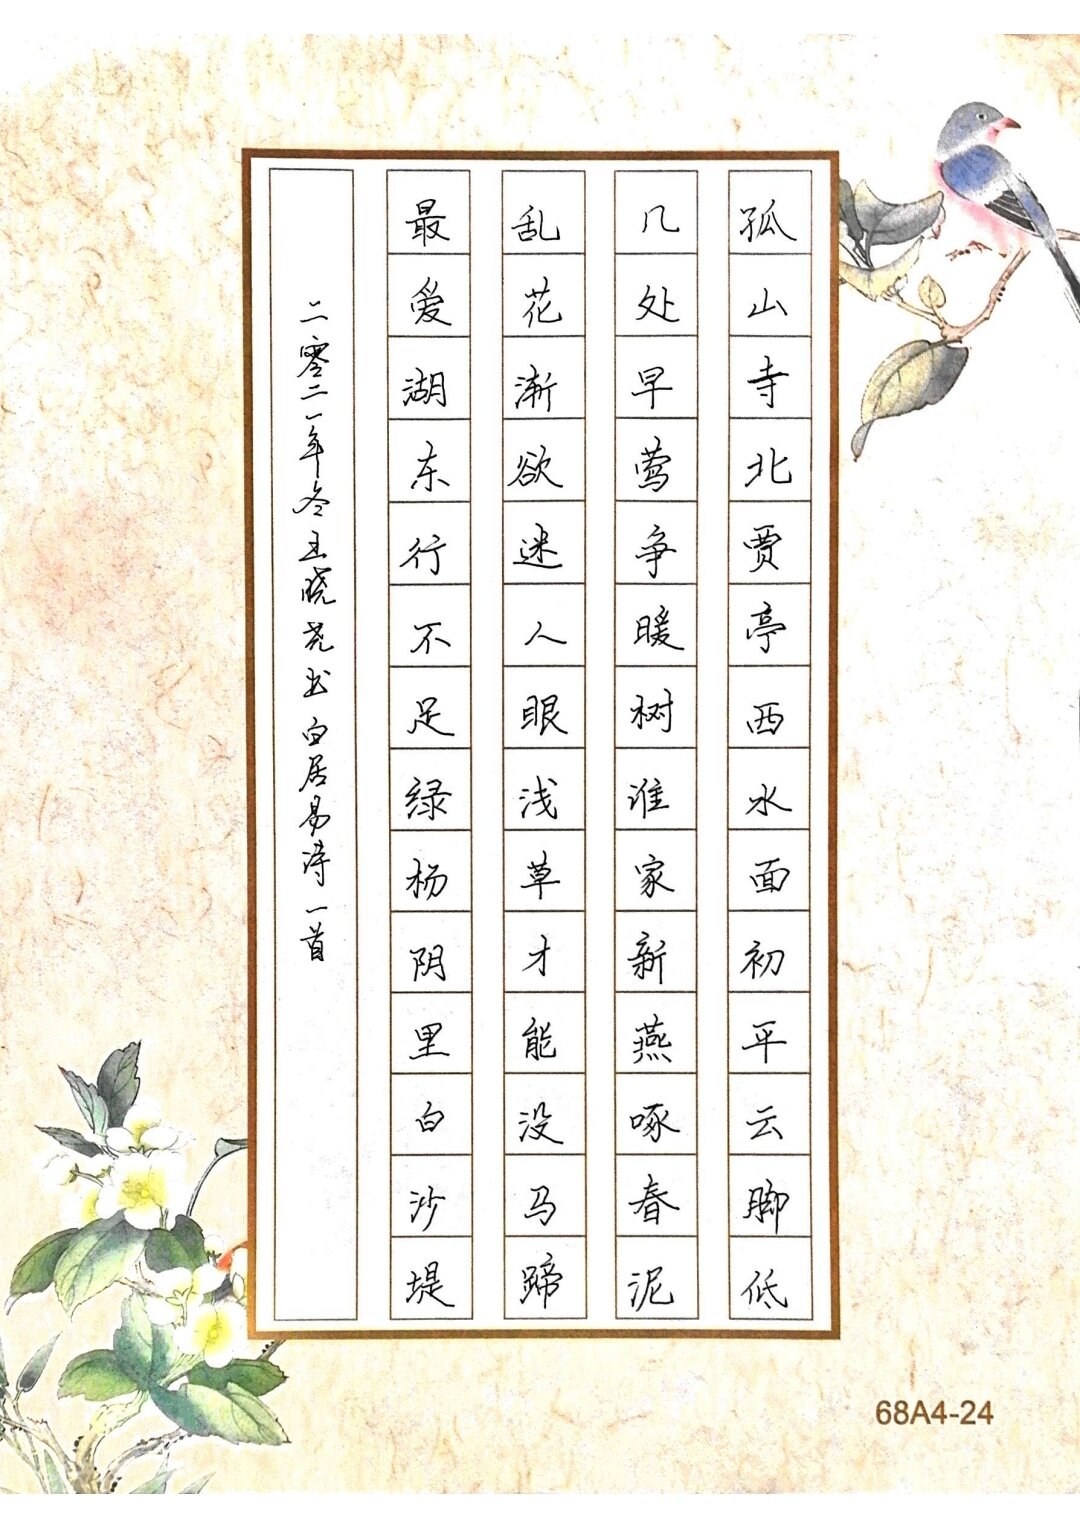 孤山寺北贾亭西水面初平云脚低
几处早莺争暖树谁家新燕啄春泥
乱花渐欲迷人眼浅草才能没马蹄
最爱湖东行不足绿杨阴里白沙堤
二零二一年冬王晓尧书白居易诗一首
68A4-24